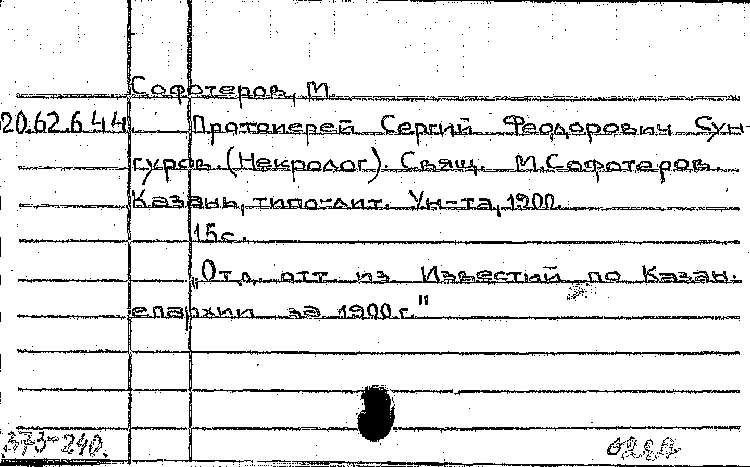 Софотеров, М.
20.62.644. Протоиерей Сергий Феодорович Сун-
гуров. (Некролог). Свящ. М.Софотеров.
Казань, типо-лит. Ун-та, 1900.
15с.
„Отд. отт из Известий по Казан.
епархии за 1900 г."
373-240.